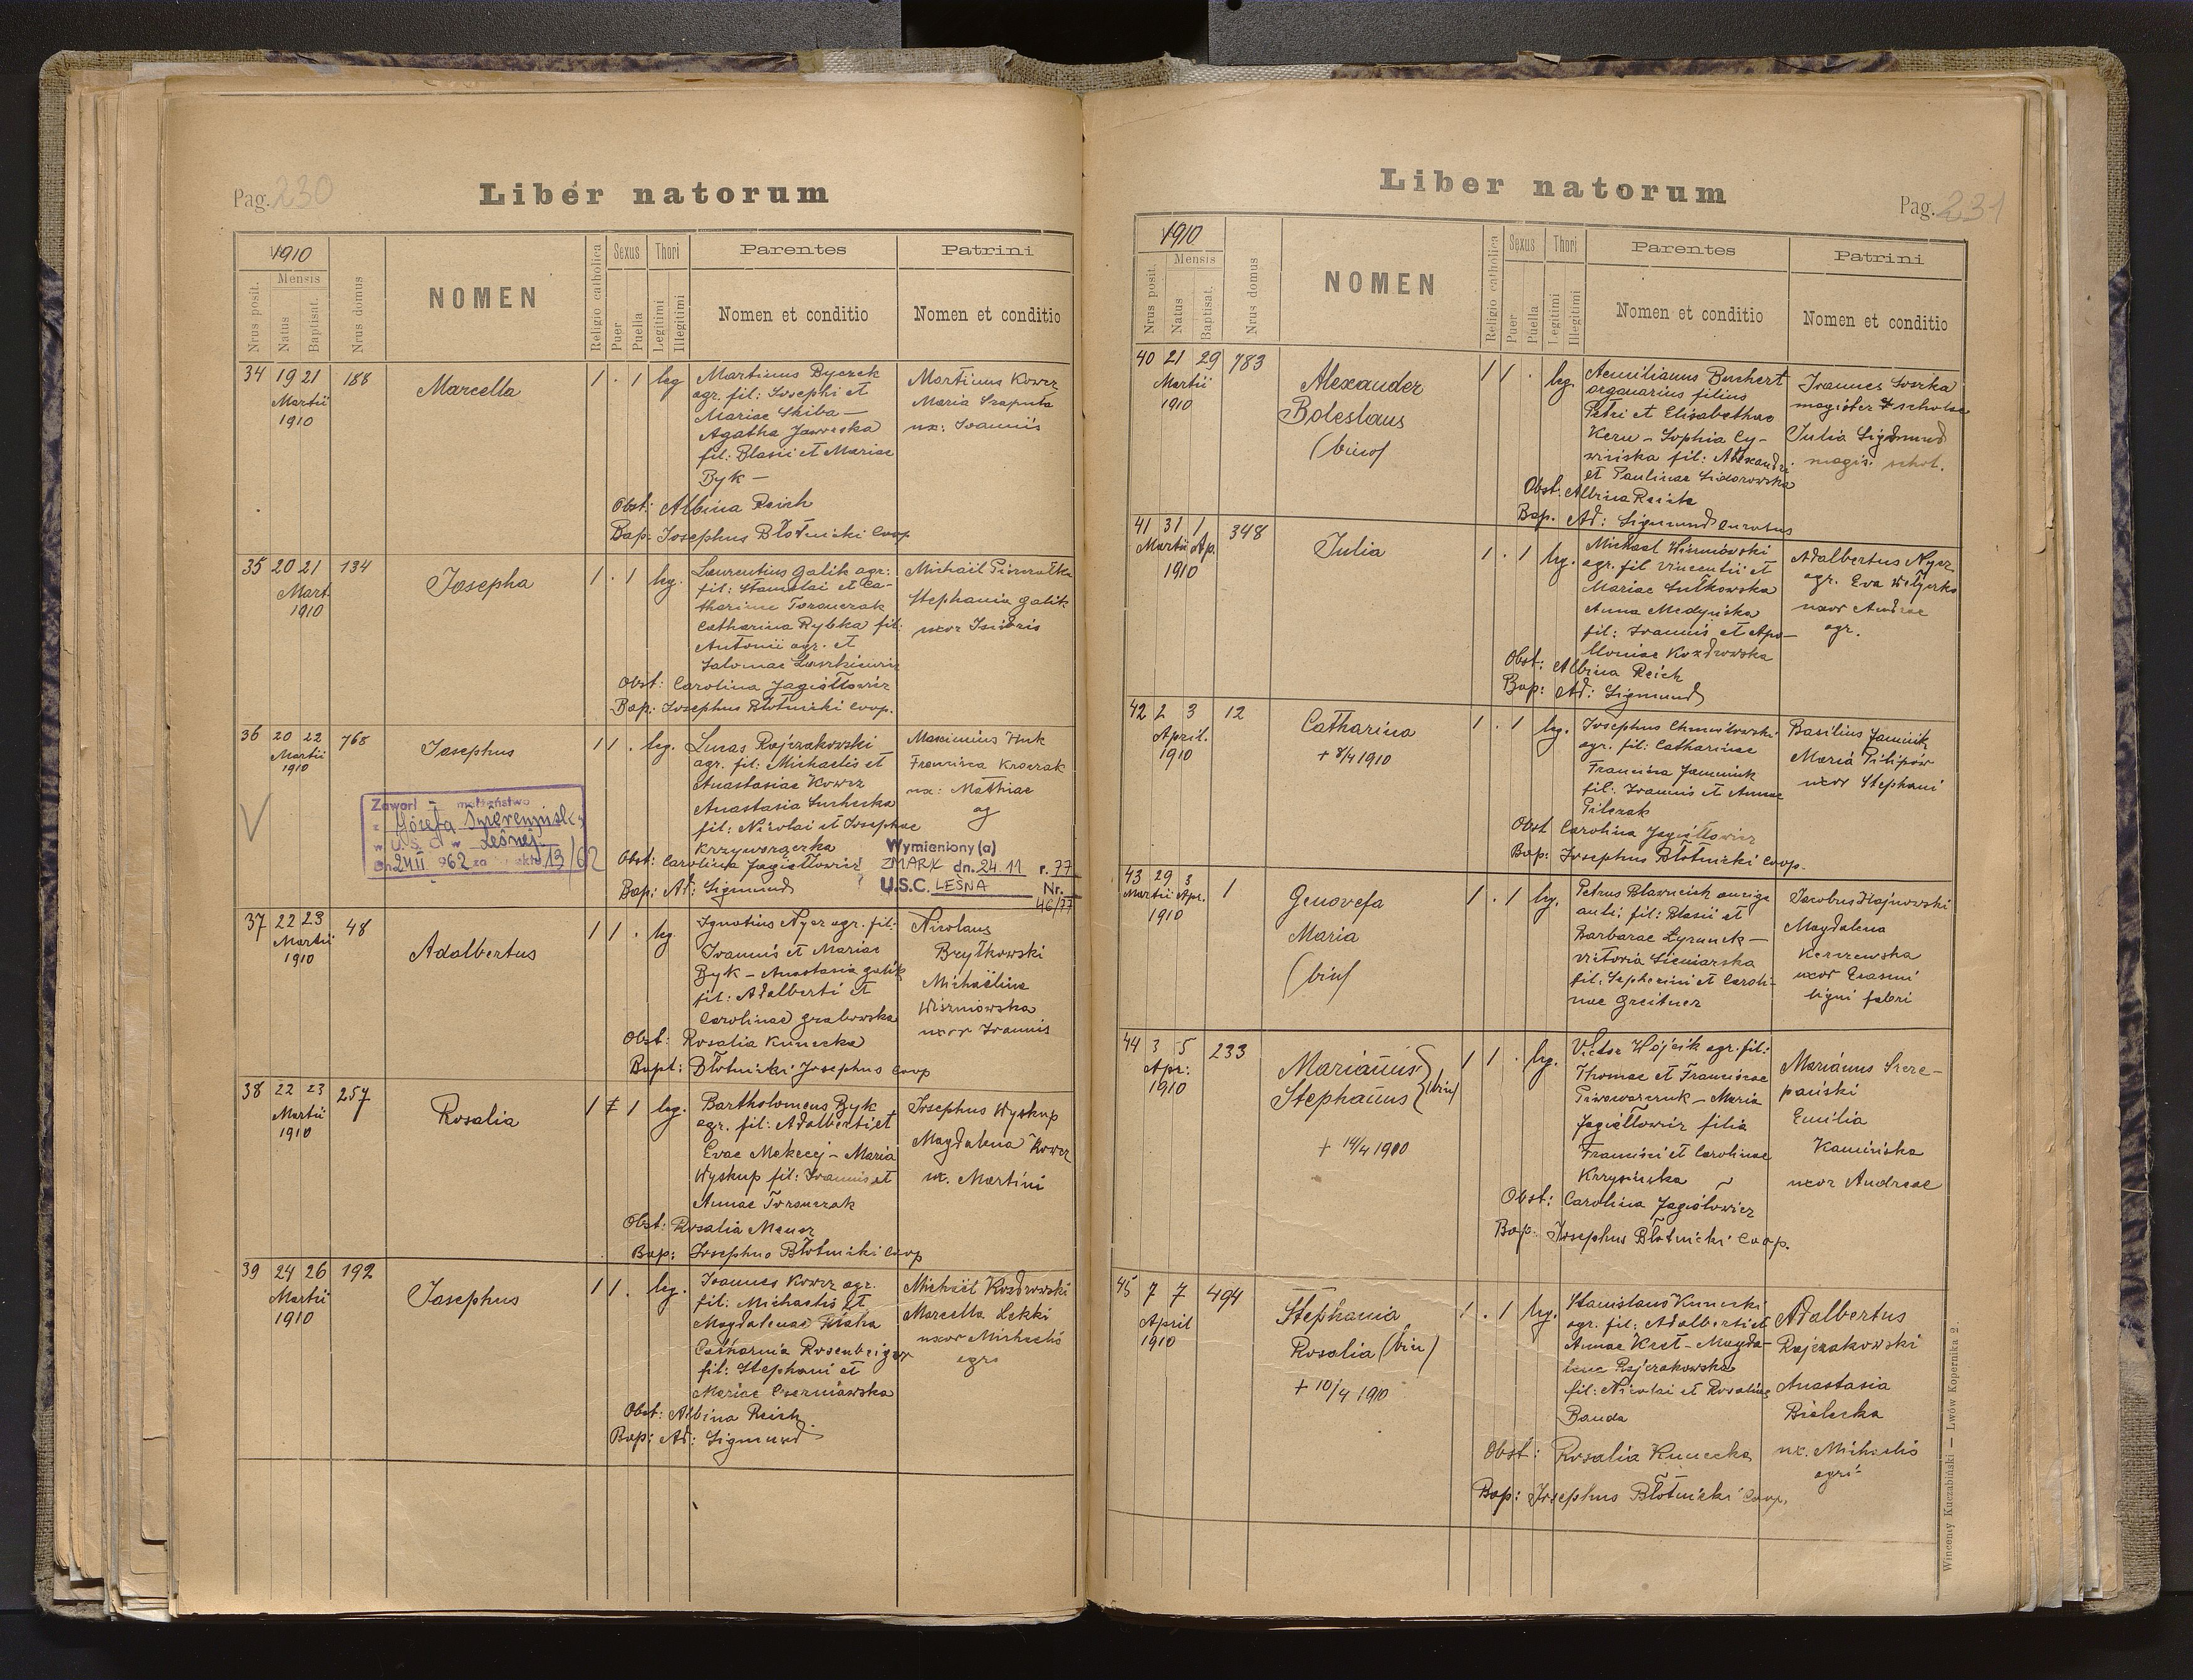 Pag. 230
Liber natorum
1910
Mensis
Nrus posit.
Natus
Baptisat.
Nrus domus
NOMEN
Religio catholica
Sexus
Puer
Puella
Thori
Legitimi
Illegitimi
Parentes
Nomen et conditio
Patrini
Nomen et conditio
34 19 21 188
Martii
1910
Marcella
1 . 1 leg
Martinus Byczek
agr. fil: Josephi et
Mariae Skiba —
Agatha Jaworska
fil: Blasii et Mariae
Byk —
Obst: Albina Reich
Bap: Josephus Błotnicki Coop
Martinus Kowcz
Maria Szaputa
ux: Joannis
35 20 21 134
Mart.
1910
Josepha
1 . 1 leg.
Laurentius Galik agr:
fil: Stanislai et Ca-
tharinae Toronczak
Catharina Rybka fil:
Antonii agr. et
Salomae Laszkiewicz
Obst: Carolina Jagiełłowicz
Bap: Josephus Błotnicki Coop.
Michaël
Stephania Galik
uxor Isidoris
36 20 22 768
Martii
1910
Josephus
1 1 . leg.
Lucas Rajczakowski —
agr. fil: Michaelis et
Anastasiae Kowcz
Anastasia Suchecka
fil: Nicolai et Josephae
Krzyworączka
Obst: Carolina Jagiełłowicz
Bap: Ad: Sigmund
Maximius Huk
Francisca Kraczak
ux: Mathiae
ag
Zawarł - małżeństwo
z Józefą
w U.S.C. w Leśnej
dn 24 II 962 za aktu 13/62
Wymieniony (a)
ZMARK dn. 24 11 r. 77
U.S.C. LEŚNA Nr.
46/77
37 22 23 48
Martii
1910
Adalbertus
1 1 . leg
Ignatius Nycz agr. fil:
Joannis et Mariae
Byk — Anastasia Galik
fil: Adalberti et
Carolinae Grabowska
Obst: Rosalia Kunecka
Bapt: Błotnicki Josephus Coop
Nicolaus
Brylkowski
Michaëlina
Wiśniowska
uxor Joannis
38 22 23 257
Martii
1910
Rosalia
1 1 leg.
Bartholomeus Byk
agr. fil: Adalberti et
Evae Mekecej — Maria
Wyskup fil: Joannis et
Annae Toronczak
Obst: Rosalia Mensz
Bap: Josephus Błotnicki Coop
Josephus Wyskup
Magdalena Kowcz
ux. Martini
39 24 26 192
Martii
1910
Josephus
1 1 . leg.
Joannes Kowcz agr.
fil: Michaelis et
Magdalenae
Catharina Rosenbeiger
fil: Stephani et
Mariae Czerniawska
Obst: Albina Reich
Bap: Ad: Sigmund
Michaël Kozdrowski
Marcella Lekki
uxor Michaelis
agri
Liber natorum
Pag. 231
1910
Mensis
Nrus posit.
Natus
Baptisat.
Nrus domus
NOMEN
Religio catholica
Sexus
Puer
Puella
Thori
Legitimi
Illegitimi
Parentes
Nomen et conditio
Patrini
Nomen et conditio
40 21 29 783
Martii
1910
Alexander
Boleslaus
(bino)
1 1 . leg.
Aemilianus Buchert
organarius filius
Petri et Elisabethae
Kern — Sophia Cy-
wińska fil: Alexandri
et Paulinae Sidorowska
Obst: Albina Reich
Bap. Ad: Sigmund Curatus
Joannes Soszka
magister scholae
Julia Sigmund
magis. schol.
41 31 1 348
Martii Ap.
1910
Julia
1 . 1 leg.
Michael Wiśniowski
agr. fil Vincentii et
Mariae Sutkowska
Anna Medyńska
fil: Joannis et Apo-
lloniae Kozdrowska
Obst: Albina Reich
Bap: Ad: Sigmund
Adalbertus Nycz
agr. Eva
uxor Andreae
agr.
42 2 3 12
April.
1910
Catharina
+ 8/4 1910
1 . 1 leg.
Josephus Chmielowski
agr. fil: Catharinae
Francisca Jaminik
fil: Joannis et Annae
Pilszak
Obst Carolina Jagiełłowicz
Bap: Josephus Błotnicki Coop.
Basilius Jaminik
Maria Pilipów
uxor Stephani
43 29 3 1
Martii Apr.
1910
Genovefa
Maria
(bin)
1 . 1 leg.
Petrus Blawucich auriga
auli; fil: Blasii et
Barbarae Łyzunek —
Victoria Sieniarska
fil: Sepherini et Caroli-
nae Greitner
Jacobus Hajnowski
Magdalena
Kerzewska
uxor Erasmi
ligni fabri
44 3 5 233
Apr:
1910
Marianus
Stephanus (bin)
+ 14/4 1910
1 1 . leg.
Victor Wójcik agr. fil:
Thomae et Franciscae
Piwowarczuk — Maria
Jagiełłowicz filia
Francisci et Carolinae
Krzysińska
Obst: Carolina Jagiełowicz
Bap: Josephus Błotnicki Coop.
Marianus Szcze-
pański
Emilia
Kamińska
uxor Andreae
45 7 7 494
April
1910
Stephania
Rosalia (bin)
+ 10/4 1910
1 . 1 leg.
Stanislaus Kunecki
agr. fil: Adalberti et
Annae Kret — Magda-
lena Rajczakowska
fil: Nicolai et Rosaliae
Banda
Obst: Rosalia Kunecka
Bap: Josephus Błotnicki Coop.
Adalbertus
Rajczakowski
Anastasia
Bielecka
ux. Michaelis
agri
Wincenty Kuczabiński — Lwów Kopernika 2.